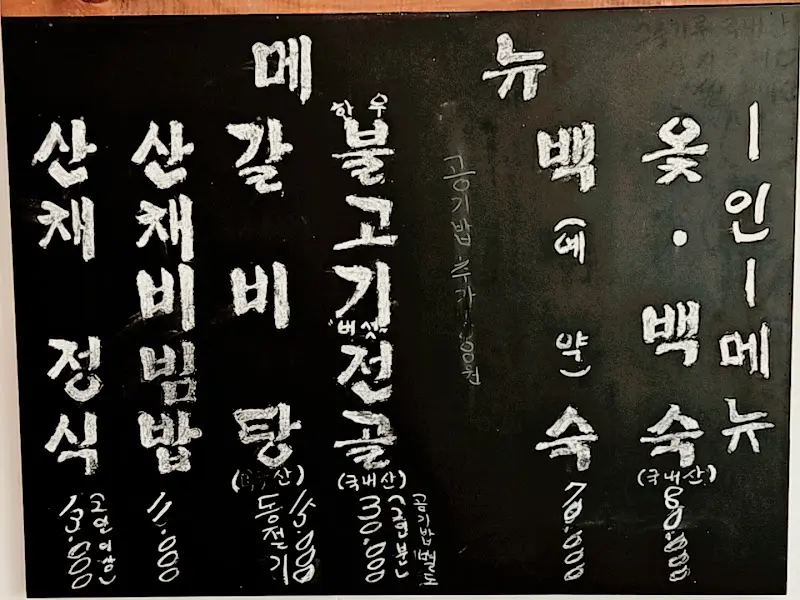 메 뉴
산채 정식
13.000
(2인 이상)
산채비빔밥
11.000
갈비탕
동절기
15.000
한우
불고기
"버섯"
전골
(국내산)
30.000
(2인분)
공기밥별도
백(예약)숙
70.000
옻·백숙
(국내산)
80.000
1인1메뉴